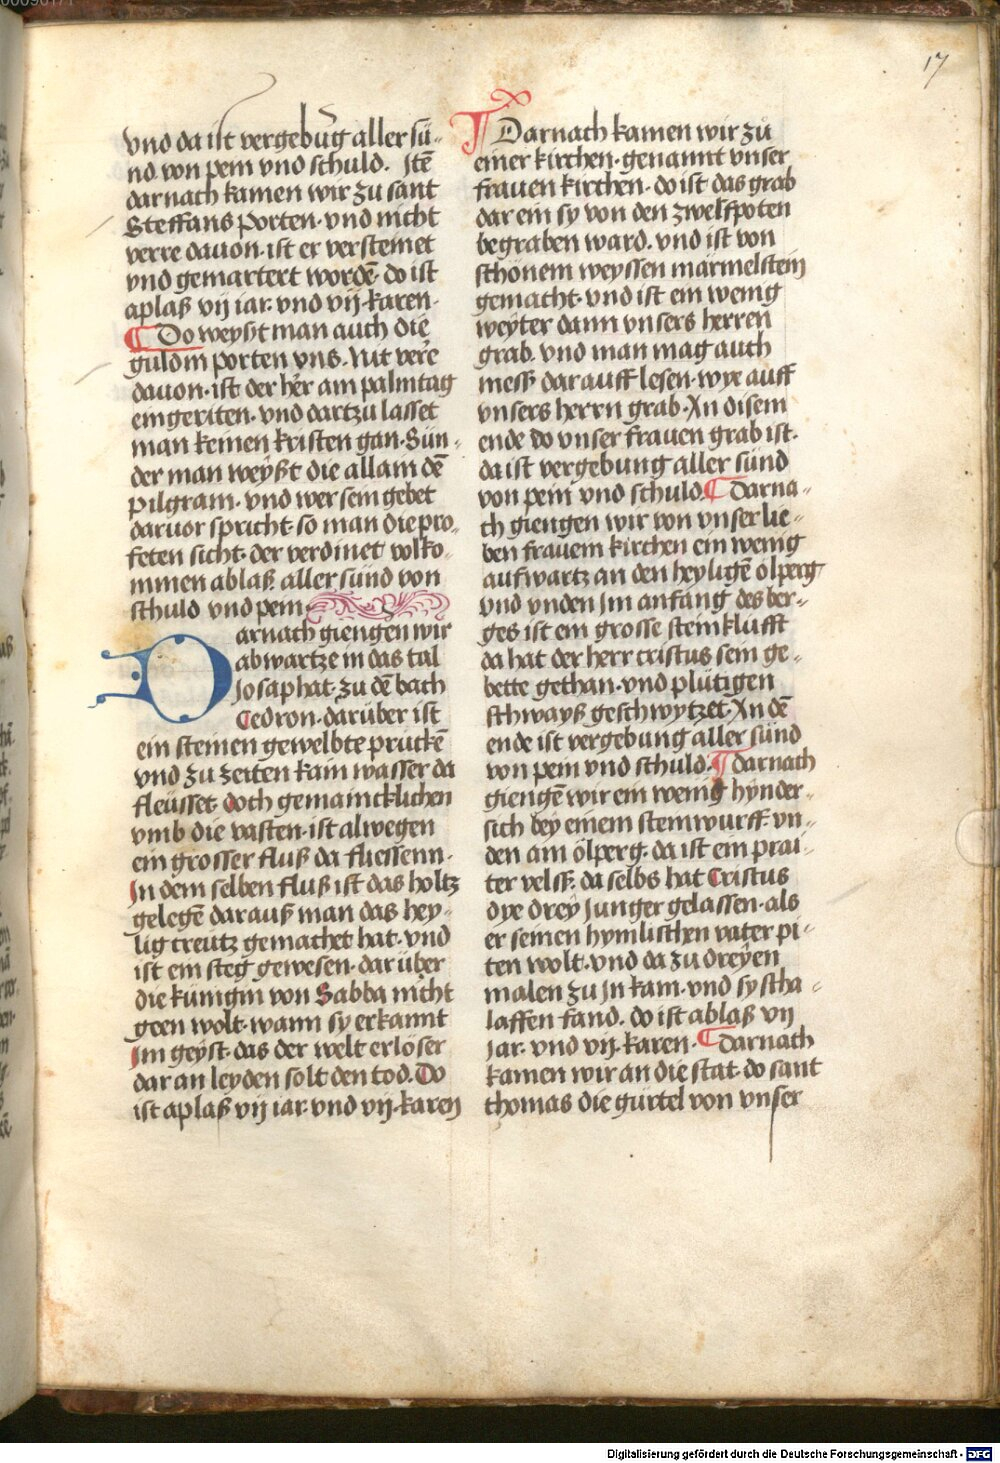 17
vnd da ist vergebūg aller sü-
nd von pein vnd schuld. Itē
darnach kamen wir zu sant
Steffans porten. vnd nicht
verre dauon. ist er versteinet
vnd gemartert wordē. do ist
aplaß vij iar. vnd vij. karen.
Do weyßt man auch die
guldin porten vns. Nit verre
dauon. ist der her am palmtag
eingeriten. vnd dartzu lasset
man keinen kristen gan. Sün-
der man weyßt die allain dē
pilgram. vnd wer sein gebet
daruor spricht. so man die pro-
feten sicht. der verdinet volko-
mmen ablaß aller sünd von
schuld vnd pein
Darnach giengen wir
abwartze in das tal
Josaphat. zu dē bach
Cedron. darüber ist
ein steinen gewelbte pruckē
vnd zu zeiten kain wasser da
fleüsset. doch gemaincklichen
vmb die vasten. ist alwegen
ein grosser fluß da fliessenn.
In dem selben fluß ist das holtz
gelegē darauß man das hey-
lig creütz gemachet hat. vnd
ist ein steg gewesen. darüber
die künigin von Sabba nicht
geen wolt. wann sy erkannt
im geyst. das der welt erlöser
daran leyden solt den tod. Do
ist aplaß vij iar. vnd vij. karen
Darnach kamen wir zů
einer kirchen. genannt vnser
frauen kirchen. do ist das grab
dar ein sy von den zwelfpoten
begraben ward. vnd ist von
schönem weyssen märmelstein
gemacht. vnd ist ein wenig
weyter dann vnsers herren
grab. vnd man mag auch
mesß darauff lesen. wye auff
vnsers herrn grab. An disem
ende do vnser frauen grab ist.
da ist vergebung aller sünd
von pein vnd schuld. Darna-
ch giengen wir von vnser lie-
ben frauem kirchen ein wenig
aufwartz an den heyligē ölperg
vnd vnden im anfang des ber-
ges ist ein grosse steinklufft
da hat der herr cristus sein ge-
bette gethan. vnd plütigen
schwayß geschwytzet. An dē
ende ist vergebung aller sünd
von pein vnd schuld. darnach
giengē wir ein wenig hynder-
sich bey einem steinwurff. vn-
den am ölperg. da ist ein prai-
ter velsß. da selbs hat Cristus
dye drey Junger gelassen. als
er seinen hymlischen vater pi-
ten wolt. vnd da zu dreyen
malen zu jn kam. vnd sy scha-
laffen fand. do ist ablaß vij
jar. vnd vij. karen. Darnach
kamen wir an die stat. do sant
thomas die gürtel von vnser
Digitalisierung gefördert durch die Deutsche Forschungsgemeinschaft - DFG